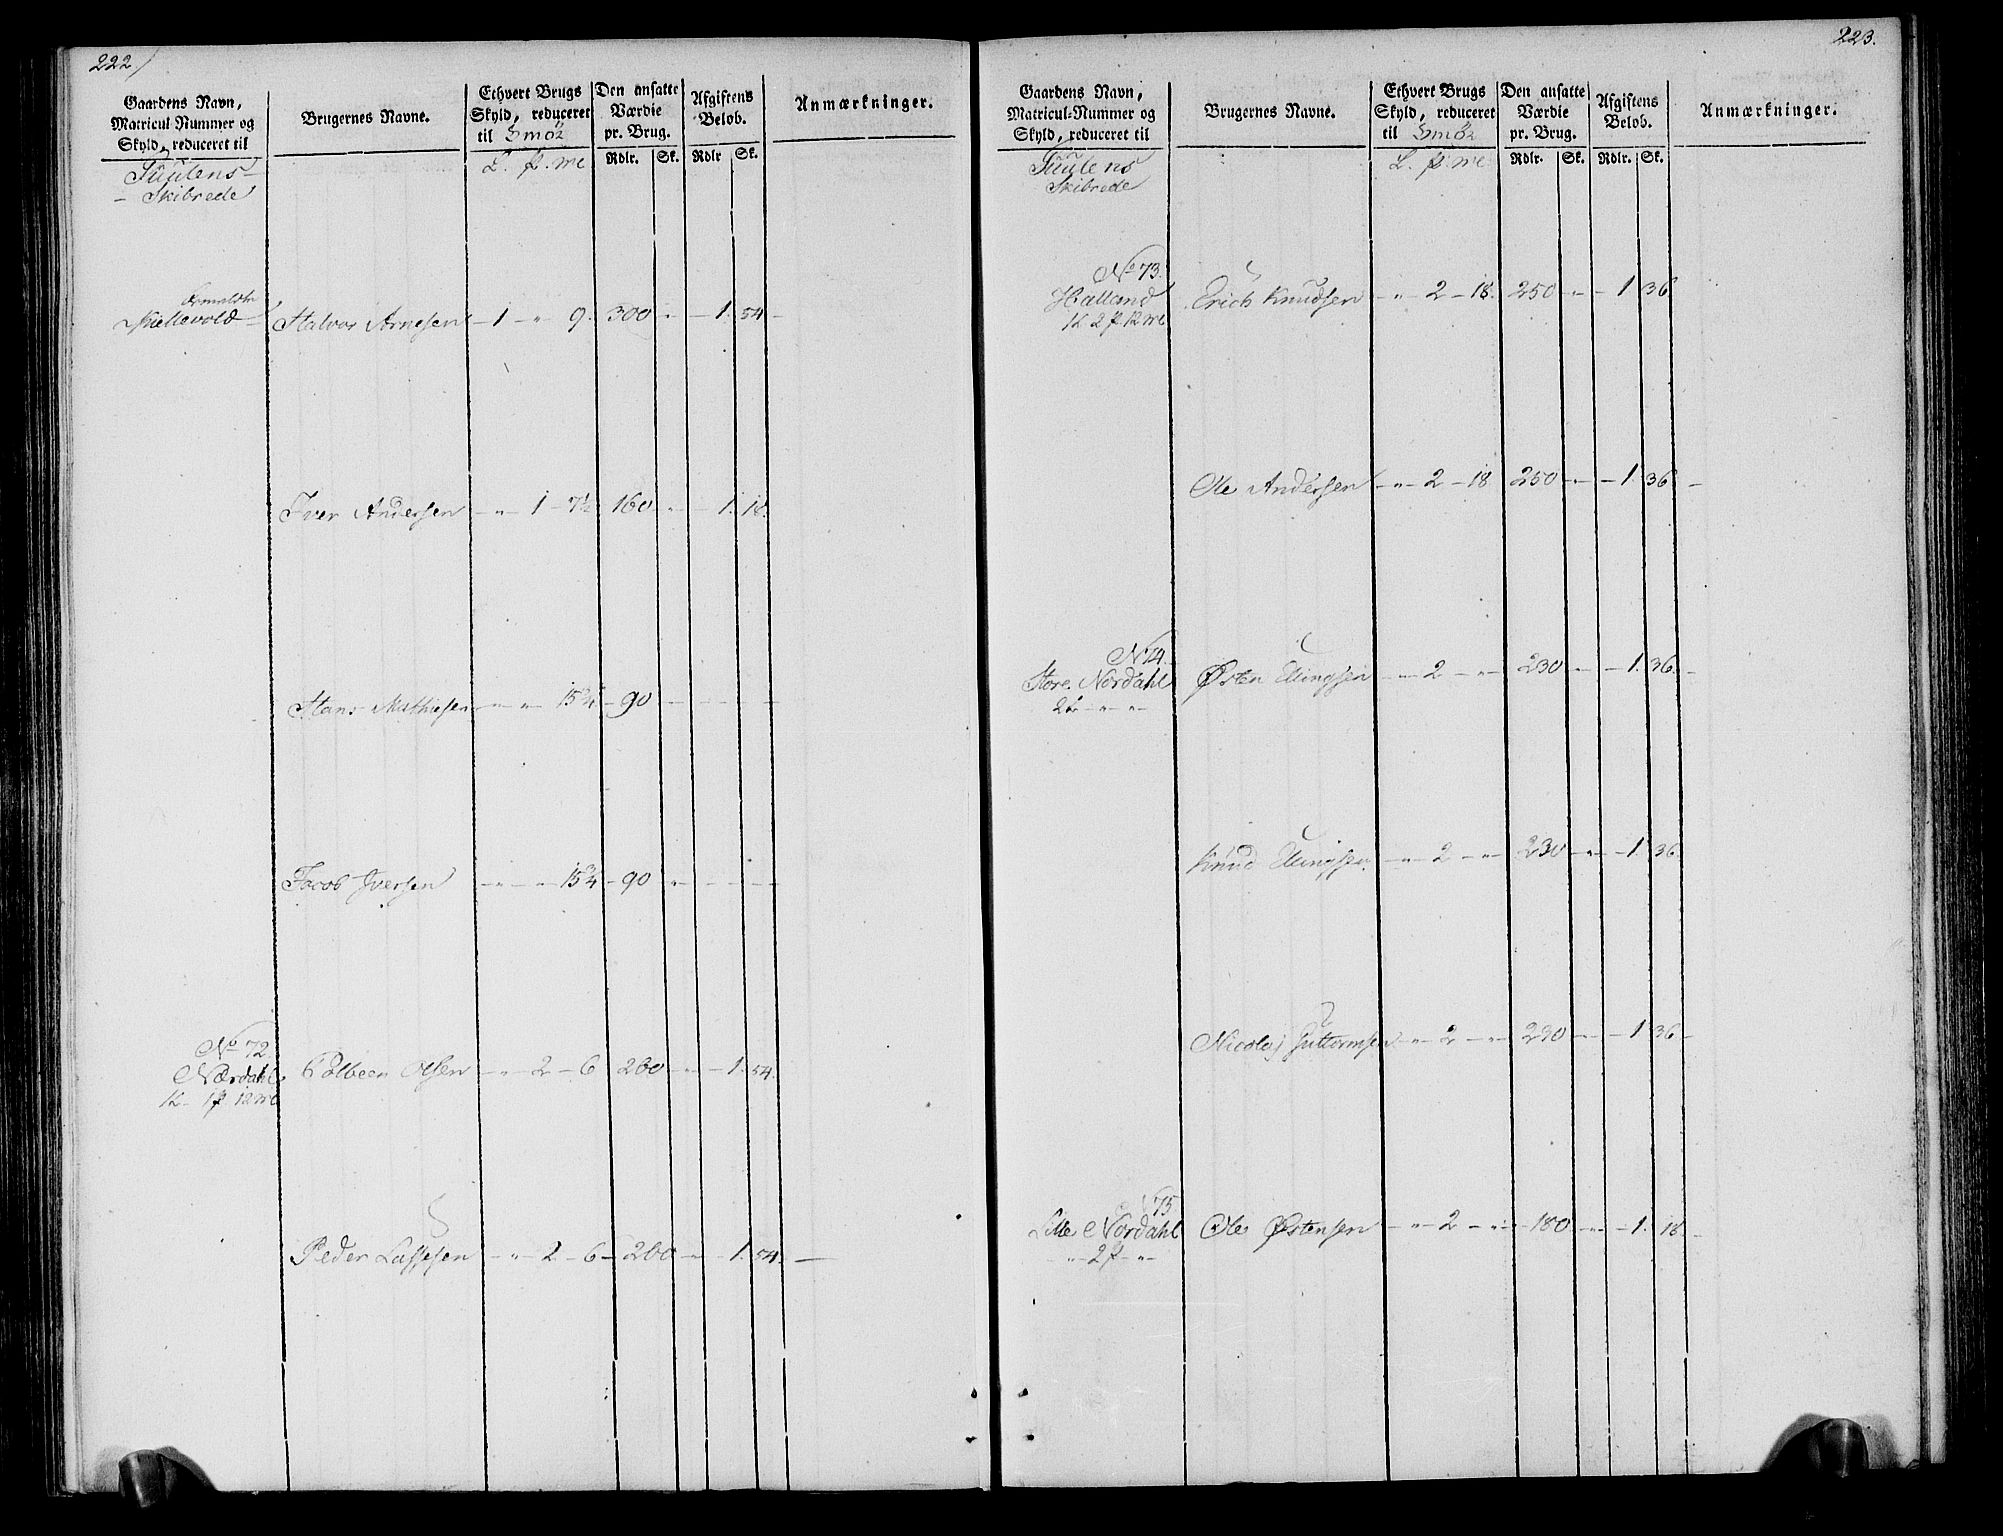 222.
Gaardens Navn, Matricul-Nummer og Skyld, reduceret til
Brugernes Navne.
Ethvert Brugs Skyld, reduceret til Smör
Den ansatte Værdie pr. Brug.
Afgiftens Beløb.
Anmærkninger.
L. p. mk
Rdlr. Sk. Rdlr Sk.
Skibrede
Kiellevold Halvor Arnesen — 1 " 9. 300 " — 1. 54 —
Iver Andersen — " — 1 — 7½ 160 " — 1. 18.
Hans Mathiesen — " — " — 15¾ — 90 — — — —
Jacob Iversen — " — " — 15¾ — 90 " — — —
No 72
Nærdahl Olsen — " — 2 — 6 260 — " — 1. 54.
1L 1p 12mk
Peder Lassesen — " — 2 — 6 — 260 — " — 1. 54. —
223.
Gaardens Navn, Matricul-Nummer og Skyld, reduceret til
Brugernes Navne.
Ethvert Brugs Skyld, reduceret til Smör
Den ansatte Værdie pr. Brug.
Afgiftens Beløb.
Anmærkninger.
L. p. mk
Rdlr. Sk. Rdlr. Sk.
Skibrede
No 73.
Halland Erich Knudsen — " — 2 — 18. 250 " — 1 36
1L 2p 12mk
Ole Andersen — " — 2 — 18 250 — " — 1. 36 —
N 74.
Store Nordahl Østen Ellingsen — " — 2 — " — 230 — " — 1. 36. —
2L — " — "
Knud Ellingsen — " — 2 — " — 230 — " — 1. 36.
Nicolaj Guttormsen — " — 2 — " — 230 — " — 1 36 —
75
Lille Nordahl Ole Østensen — " — 2 — " — 180 — " — 1. 18. —
" — 2p — "